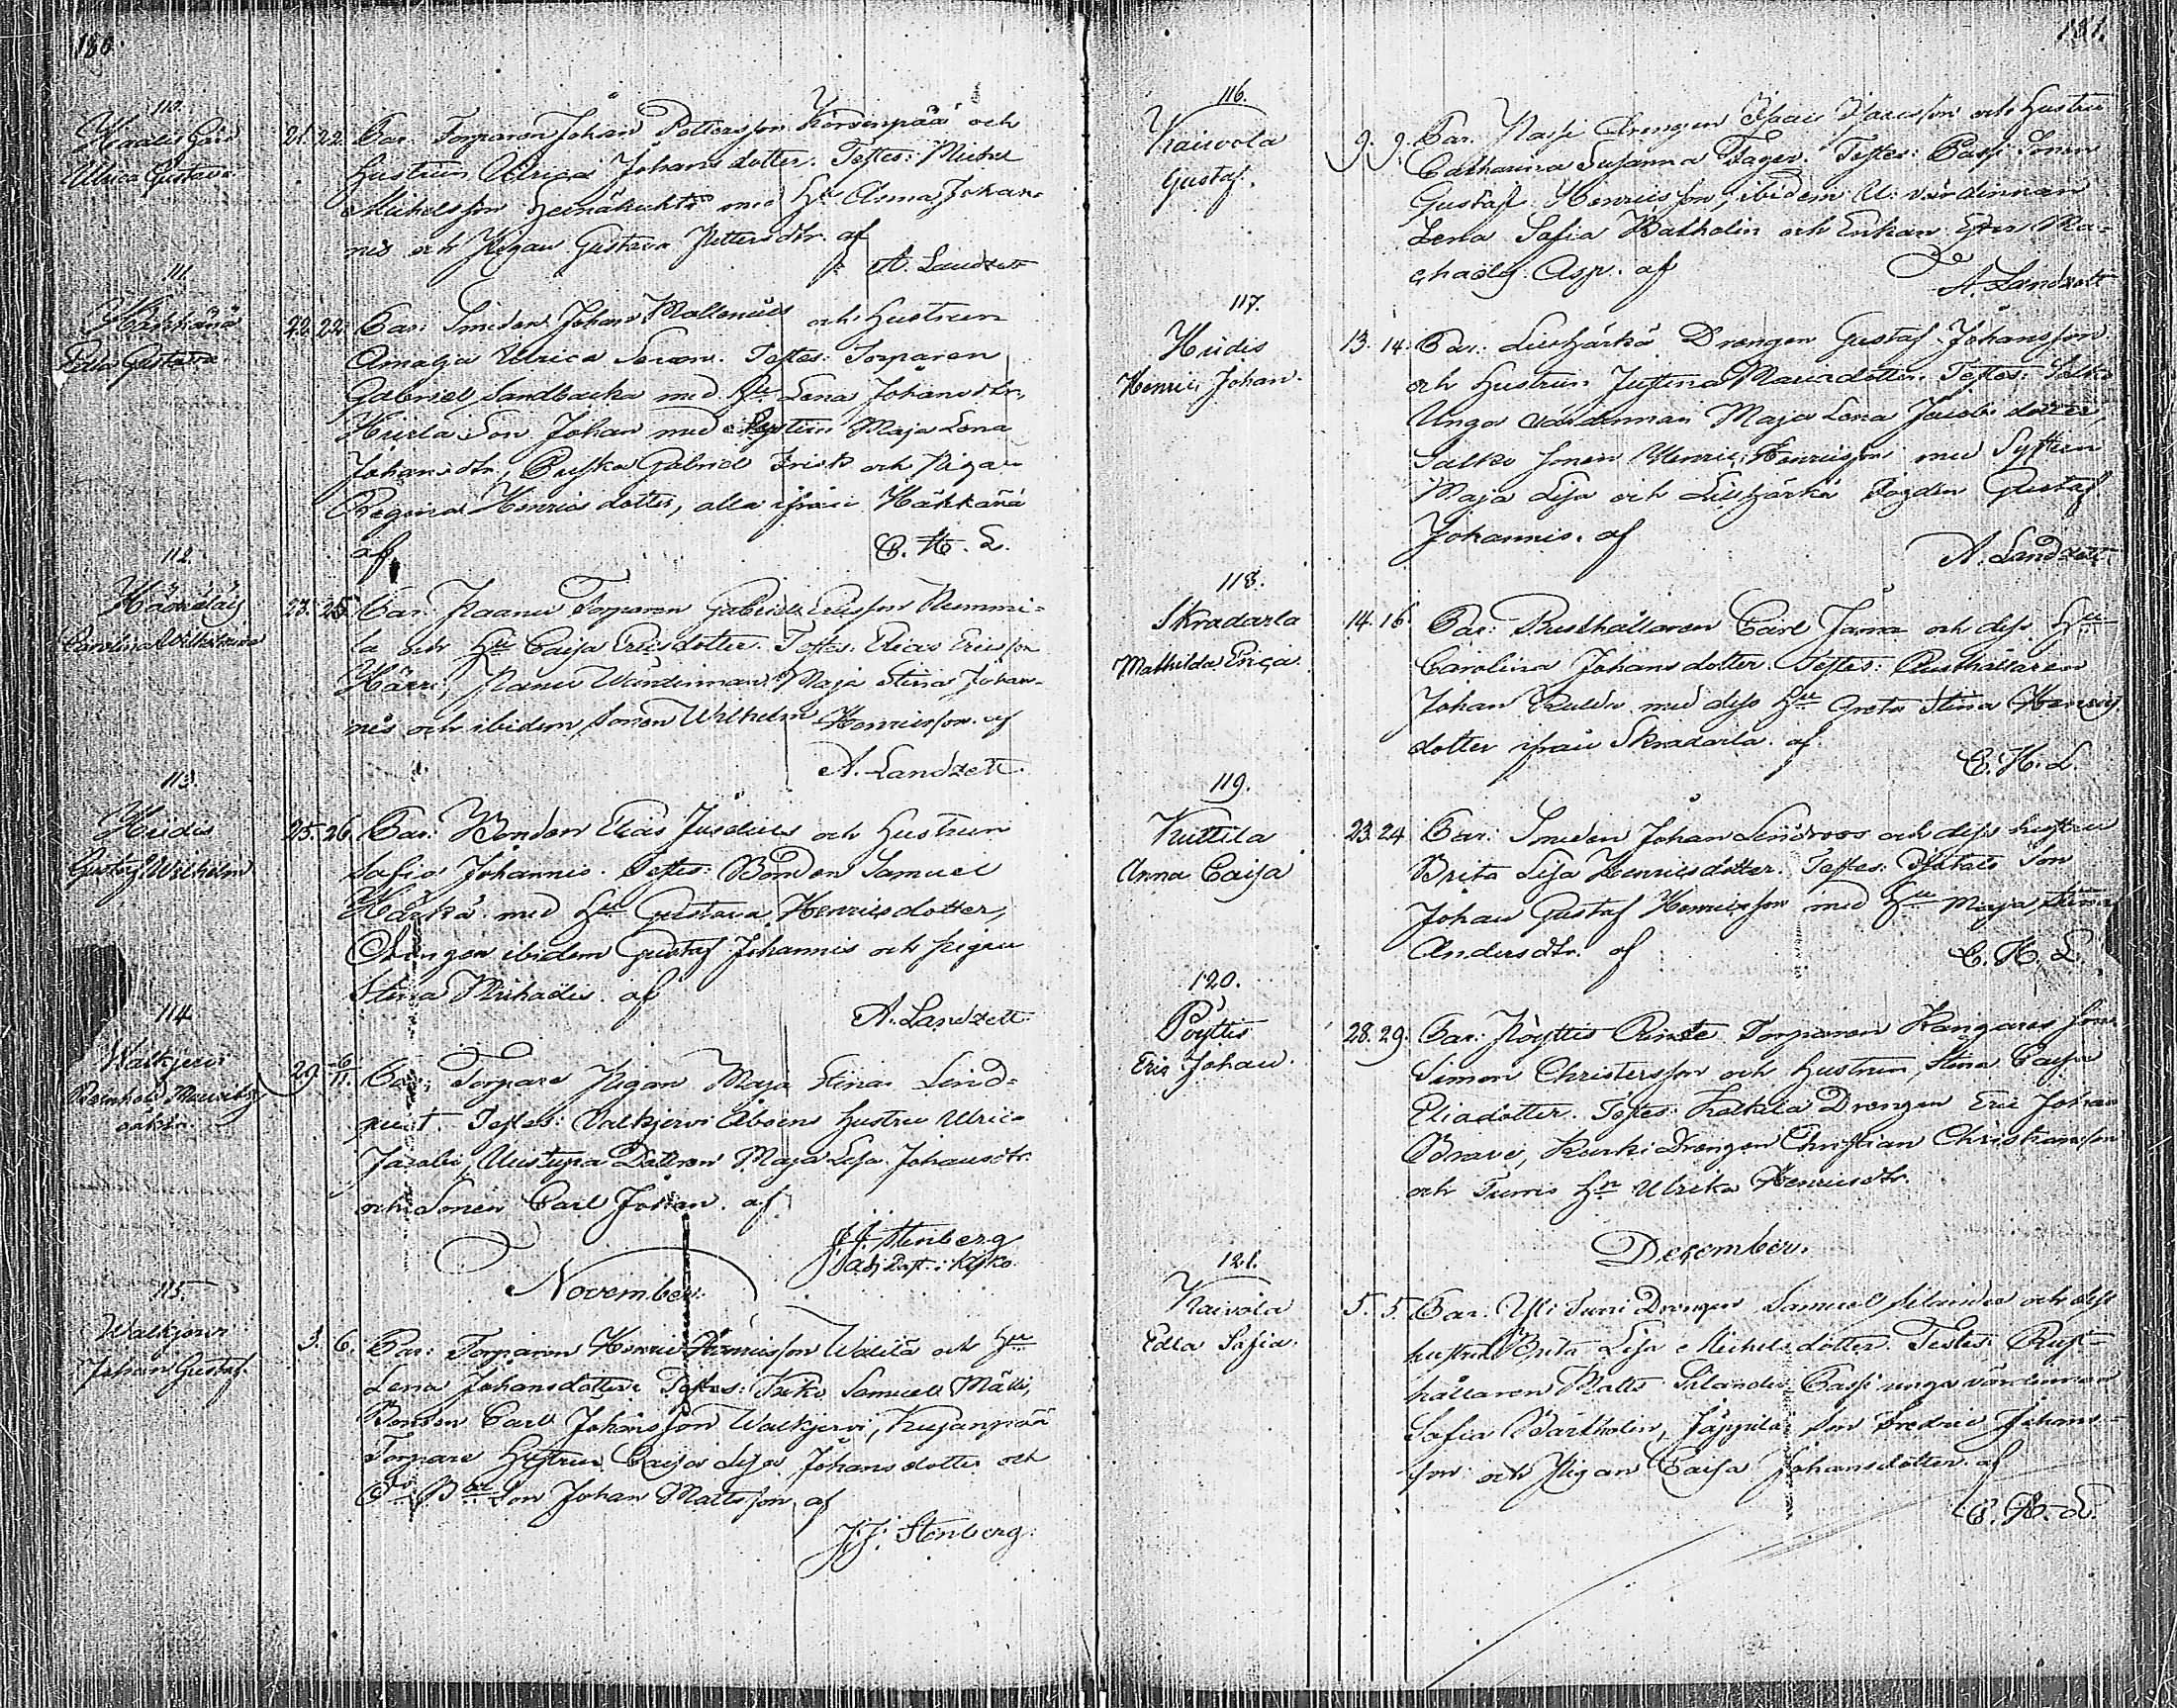 180.
110.
Ulrica Gustava
21. 22. Par. Torparen Johan Pettersson Korvenpää och
Hustrun Ulrica Johansdotter. Testes: Michel
Michelsson med Hu Anna Johan-
nis och Pigan Gustava Pettersdtr. af
A. Landzett
111.
Häkkänä
Gustava
22. 22. Par: Smeden Johan Mallenius och Hustrun
Ulrica Testes: Torparen
Gabriel Sandbacka med Hu Lena Johansdtr,
Son Johan med Maja Lena
Johansdtr, Gabriel Frisk och Pigan
Regina Henricsdotter, alla ifrån Häkkänä
af C. H. L.
112.
Carolina Wilhelmina
23. 25. Par: Torparen Gabriel Ericsson Nummi-
la och Hu Caisa Ericsdotter. Testes: Elias Ericsson
Härri, Wärdinnan Maja Stina Johan-
nis och ibidem Sonen Wilhelm Henricsson. af
A. Landzett.
113.
Heidis
Gustaf Wilhelm
25. 26. Par: Bonden Elias och Hustrun
Safia Johannis. Testes: Bonden Samuel
Härkä med Hu Gustava Henricsdotter,
Drengen ibidem Gustaf Johannis och Pigan
Stina Michaelis. af
A. Landzett.
114
Walkjervi
Reinhold Mauritz
oäkta
29. 6/11. Par: Torpare Pigan Maja Stina Lind-
qvist. Testes: Valkjervi Åboens Hustru Ulrica
Jacobi, Uustupa Dottren Maja Lisa Johansdtr.
och Sonen Carl Johan. af
J. J. Stenberg
Adj. Past. i Kisko.
November.
115.
Walkjervi
Johan Gustaf.
3. 6. Par: Torparen Henric Henricsson och Hu
Lena Johansdotter. Testes: Samuel Mälli,
Bonden Carl Johansson Walkjervi, Kujanpää
Torpare Hustrun Caisa Lisa Johansdotter och
Son Johan Mattsson, af
J. J. Stenberg.
181.
116.
Kaivola
Gustaf.
9. 9. Par. Drengen Isaac Isacsson och Hustru
Catharina Susanna Fager. Testes: Passi Sonen
Gustaf Henricsson, ibidem U: värdinnan
Lena Safia Bartholin och Enkan Ester Mi-
chaëls. Asp. af
A. Landzett
117.
Heidis
Henric Johan.
13. 14. Par: Lillhärkä Drengen Gustaf Johansson
och Hustrun Justina Mariadotter. Testes:
Unga värdinnan Maja Lena Jacobsdotter,
Salko Sonen Henric Henricsson med Systern
Maja Lisa och Lillhärkä Gustaf
Johannis. af
A. Landzett.
118.
Skradarla
Mathilda Erica
14. 16. Par: Rusthållaren Carl Jama och dess Hu
Carolina Johansdotter. Testes: Rusthållaren
Johan med dess Hu Greta Stina Henrics
dotter ifrån Skradarla. af
C. H. L.
119.
Kuittila
Anna Caisa
23. 24. Par: Smeden Johan Lindroos och dess hustru
Brita Lisa Henricsdotter. Testes: Son
Johan Gustaf Henricsson med Hu Maja Stina
Andersdtr. af
C. H. L.
120.
Pöytis
Eric Johan.
28. 29. Par: Pöyttis Torparen Kangares Son
Simon Christersson och Hustrun Stina Caisa
Eliadotter. Testes: Drengen Eric Johan
Brave, Kurki Drengen Christian Christiansson
och Hu Ulrika Henricsdtr.
December.
121.
Kaivola
Edla Safia.
5. 5. Par. Yli Turri Drengen Samuel Silander och dess
hustru Brita Lisa Michelsdotter. Testes: Rust-
hållaren Matts Silander, Passi unga värdinnan
Safia Bartholin, Jäppilä Son Fredric Johans-
son och Pigan Caisa Johansdotter. af
C. H. L.